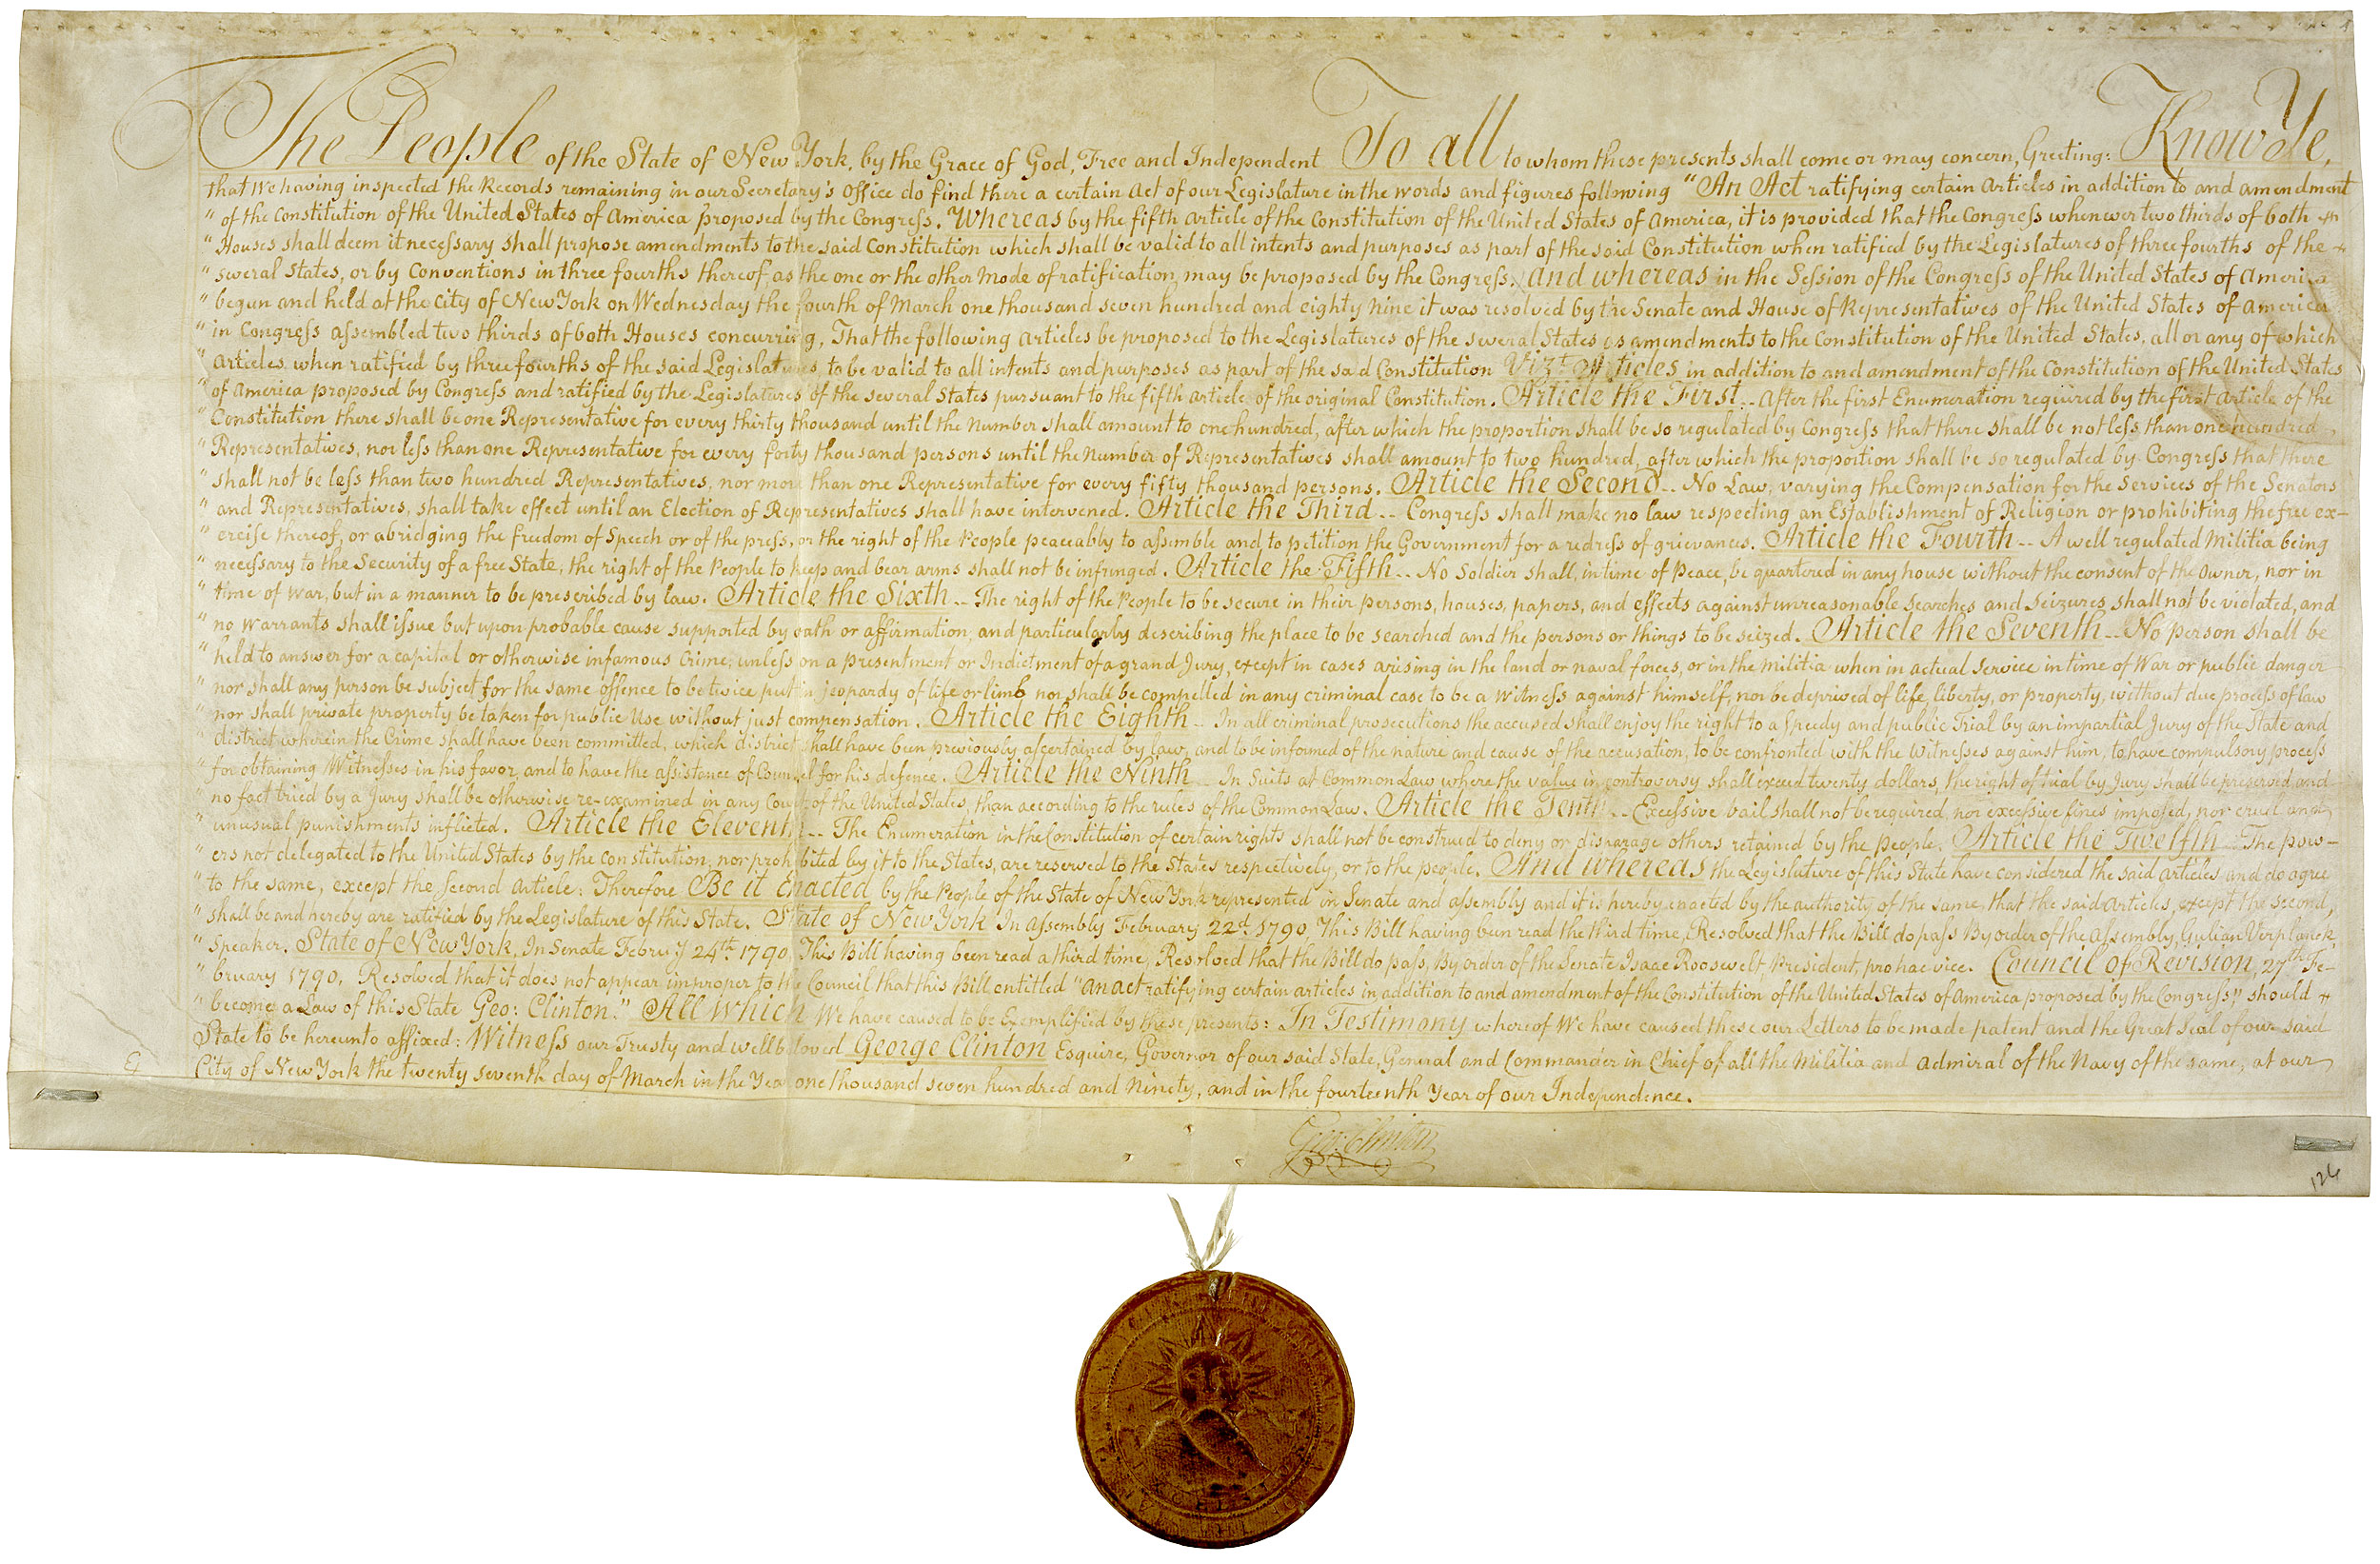 The People of the State of New York, by the Grace of God, Free and Independent To all to whom these presents shall come or may concern, Greeting: Know Ye,
that We having inspected the Records remaining in our Secretary's Office do find there a certain Act of our Legislature in the words and figures following "An Act ratifying certain articles in addition to and amendment
" of the Constitution of the United States of America proposed by the Congress. Whereas by the fifth article of the Constitution of the United States of America, it is provided that the Congress whenever two thirds of both
" Houses shall deem it necessary shall propose amendments to the said Constitution which shall be valid to all intents and purposes as part of the said Constitution when ratified by the Legislatures of three fourths of the
" several States, or by Conventions in three fourths thereof, as the one or the other Mode of ratification may be proposed by the Congress. And whereas in the Session of the Congress of the United States of America
" begun and held at the City of New York on Wednesday the fourth of March one thousand seven hundred and eighty nine it was resolved by the Senate and House of Representatives of the United States of America
" in Congress assembled two thirds of both Houses concurring, That the following articles be proposed to the Legislatures of the several States as amendments to the Constitution of the United States, all or any of which
" articles when ratified by three fourths of the said Legislatures, to be valid to all intents and purposes as part of the said Constitution Vizt. Articles in addition to and amendment of the Constitution of the United States
" of America proposed by Congress and ratified by the Legislatures of the several States pursuant to the fifth article of the original Constitution. Article the First -- After the first Enumeration required by the first article of the
" Constitution there shall be one Representative for every thirty thousand until the Number shall amount to one hundred, after which the proportion shall be so regulated by Congress that there shall be not less than one hundred
" Representatives, nor less than one Representative for every forty thousand persons until the Number of Representatives shall amount to two hundred, after which the proportion shall be so regulated by Congress that there
" shall not be less than two hundred Representatives, nor more than one Representative for every fifty thousand persons. Article the Second -- No Law, varying the Compensation for the services of the Senators
" and Representatives, shall take effect until an Election of Representatives shall have intervened. Article the Third -- Congress shall make no law respecting an Establishment of Religion or prohibiting the free ex-
" ercise thereof, or abridging the freedom of Speech or of the press, or the right of the People peaceably to assemble and to petition the Government for a redress of grievances. Article the Fourth -- A well regulated Militia being
" necessary to the Security of a free State, the right of the People to keep and bear arms shall not be infringed. Article the Fifth -- No Soldier shall, in time of Peace, be quartered in any house without the consent of the Owner, nor in
" time of war, but in a manner to be prescribed by law. Article the Sixth -- The right of the People to be secure in their persons, houses, papers, and effects against unreasonable searches and seizures shall not be violated, and
" no warrants shall issue but upon probable cause supported by oath or affirmation, and particularly describing the place to be searched and the persons or things to be seized. Article the Seventh -- No person shall be
" held to answer for a capital or otherwise infamous Crime, unless on a presentment or Indictment of a grand Jury, except in cases arising in the land or naval forces, or in the militia when in actual Service in time of War or public danger
" nor shall any person be subject for the same offence to be twice put in jeopardy of life or limb nor shall be compelled in any criminal case to be a Witness against himself, nor be deprived of life, liberty, or property, without due process of law
" nor shall private property be taken for public Use without just compensation. Article the Eighth -- In all criminal prosecutions the accused shall enjoy the right to a speedy and public Trial by an impartial Jury of the State and
" district wherein the Crime shall have been committed, which district shall have been previously ascertained by law, and to be informed of the nature and cause of the accusation, to be confronted with the Witnesses against him, to have compulsory process
" for obtaining Witnesses in his favor, and to have the assistance of Counsel for his defence. Article the Ninth -- In Suits at Common Law where the value in controversy shall exceed twenty dollars, the right of trial by Jury shall be preserved, and
" no fact tried by a Jury shall be otherwise re-examined in any Court of the United States, than according to the rules of the Common Law. Article the Tenth -- Excessive bail shall not be required, nor excessive fines imposed, nor cruel and
" unusual punishments inflicted. Article the Eleventh -- The Enumeration in the Constitution of certain rights shall not be construed to deny or disparage others retained by the people. Article the Twelfth -- The pow-
" ers not delegated to the United States by the constitution, nor prohibited by it to the States, are reserved to the States respectively, or to the people. And whereas the Legislature of this State have considered the said articles and do agree
" to the same, except the second article: Therefore Be it Enacted by the People of the State of New York represented in Senate and assembly and it is hereby enacted by the authority of the same, that the said articles, except the second,
" shall be and hereby are ratified by the Legislature of this State. State of New York In Assembly February 22d. 1790. This Bill having been read the third time, Resolved that the Bill do pass By order of the Assembly, Gulian Verplanck,
" Speaker. State of New York, In Senate Februy 24th. 1790, This Bill having been read a third time, Resolved that the Bill do pass, By order of the Senate Isaac Roosevelt, President, pro hac vice. Council of Revision, 27th Fe-
" bruary 1790. Resolved that it does not appear improper to the Council that this Bill entitled "an act ratifying certain articles in addition to and amendment of the Constitution of the United States of America proposed by the Congress," should
" become a Law of this State Geo: Clinton." All which We have caused to be Exemplified by these presents: In Testimony whereof We have caused these our Letters to be made patent and the Great Seal of our said
State to be hereunto affixed: Witness our Trusty and wellbeloved George Clinton Esquire, Governor of our said State, General and Commander in Chief of all the Militia and Admiral of the Navy of the same, at our
City of New York the twenty seventh day of March in the Year one thousand seven hundred and Ninety, and in the fourteenth Year of our Independence.
Geo: Clinton
126